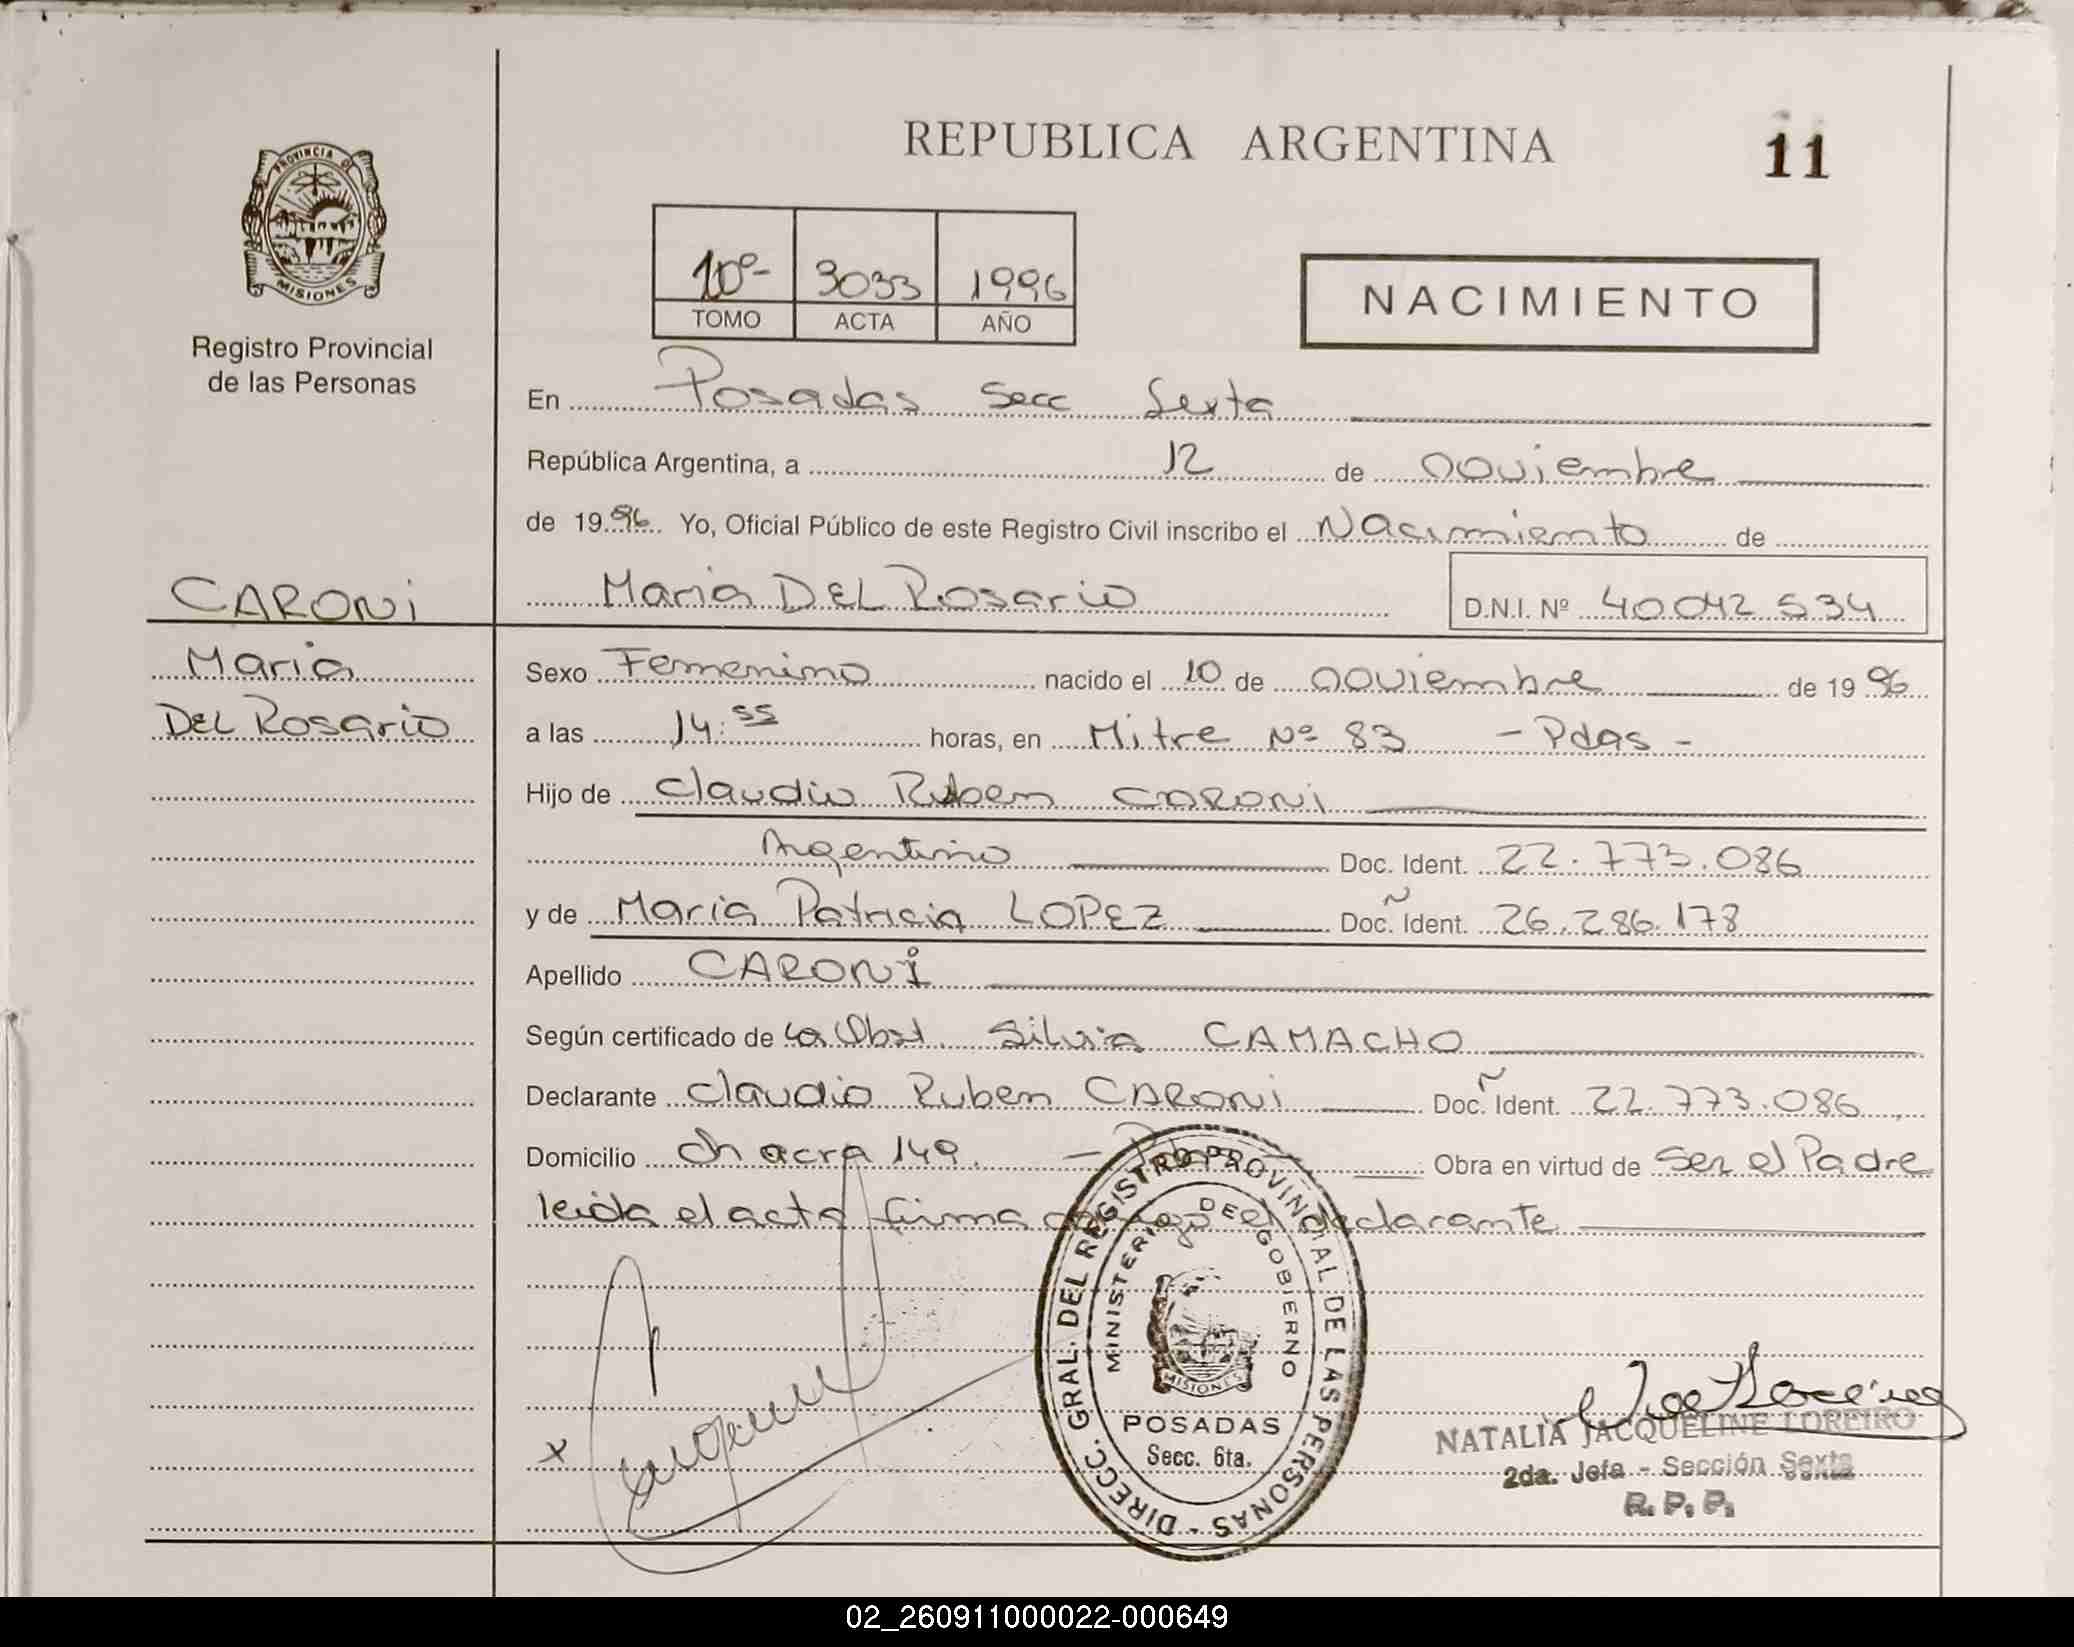 REPUBLICA ARGENTINA
11
PROVINCIA DE
MISIONES
Registro Provincial
de las Personas
10º- 3033 1996
TOMO ACTA AÑO
NACIMIENTO
En Posadas Secc Sexta
República Argentina, a 12 de noviembre
de 1996 Yo, Oficial Público de este Registro Civil inscribo el Nacimiento de
CARONi
Maria DEL Rosario D.N.I. Nº 40.042.534
Maria
DEL Rosario
Sexo Femenino nacido el 10 de noviembre de 1996
a las 14:55 horas, en Mitre Nº 83 - Pdas -
Hijo de Claudio Ruben CARONi
Argentino Doc. Ident. 22.773.086
y de Maria Patricia LOPEZ Doc. Ident. 26.286.178
Apellido CARONi
Según certificado de la Obst. Silvia CAMACHO
Declarante Claudio Ruben CARONi Doc. Ident. 22.773.086
Domicilio Chacra 149. - Pdas - Obra en virtud de Ser el Padre
leida el acta firma conmigo el declarante
DIRECC. GRAL. DEL REGISTRO PROVINCIAL DE LAS PERSONAS -
MINISTERIO DE GOBIERNO
MISIONES
POSADAS
Secc. 6ta.
x
NATALIA JACQUELINE LOREIRO
2da. Jefa - Sección Sexta
R. P. P.
02_260911000022-000649